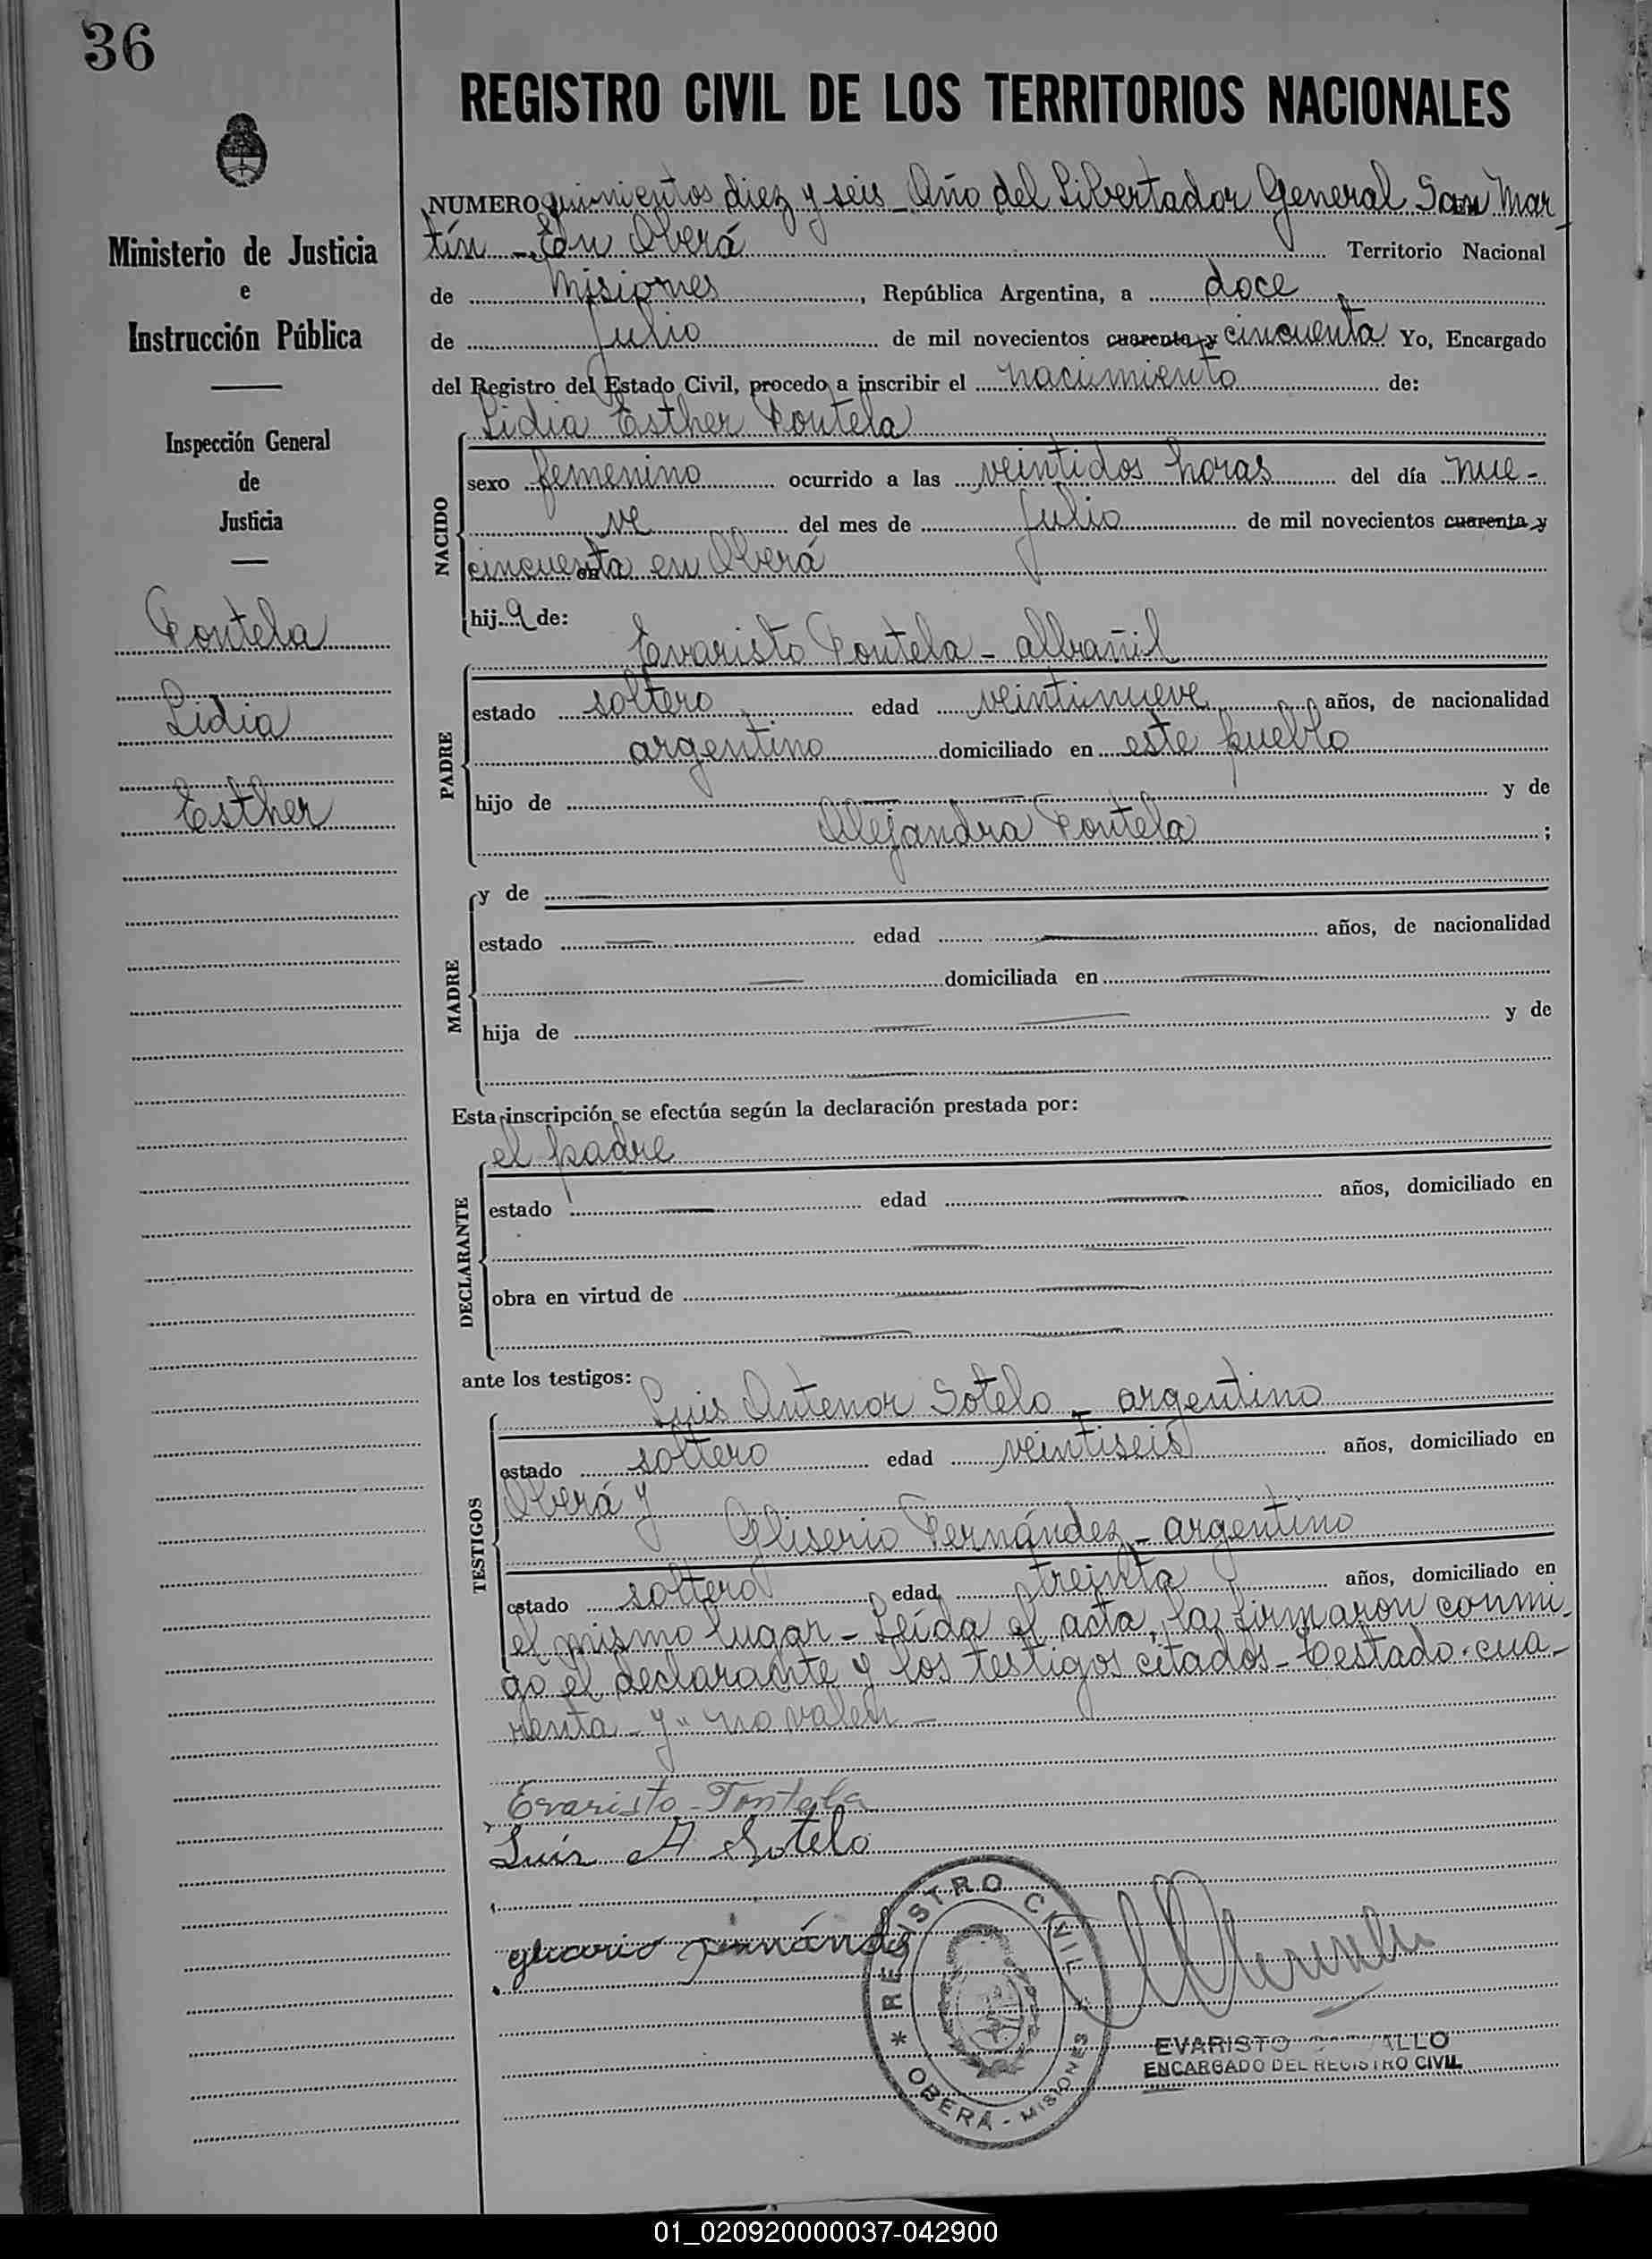 36
REGISTRO CIVIL DE LOS TERRITORIOS NACIONALES
Ministerio de Justicia
e
Instrucción Pública
Inspección General
de
Justicia
Fontela
Lidia
Esther
NUMERO quinientos diez y seis - Año del Libertador General San Mar
tín - En Oberá Territorio Nacional
de Misiones, República Argentina, a doce
de Julio de mil novecientos cuarenta y cincuenta Yo, Encargado
del Registro del Estado Civil, procedo a inscribir el nacimiento de:
NACIDO
Lidia Esther Fontela
sexo femenino ocurrido a las veintidos horas del día nue-
ve del mes de Julio de mil novecientos cuarenta y
cincuenta en Oberá
hija de:
PADRE
Evaristo Fontela - albañil
estado soltero edad veintinueve años, de nacionalidad
argentino domiciliado en este pueblo
hijo de y de
Alejandra Fontela ;
MADRE
y de
estado edad años, de nacionalidad
domiciliada en
hija de y de
Esta inscripción se efectúa según la declaración prestada por:
DECLARANTE
el padre
estado edad años, domiciliado en
obra en virtud de
ante los testigos:
TESTIGOS
Luis Antenor Sotelo - argentino
estado soltero edad veintiseis años, domiciliado en
Oberá y
Gliserio Fernández - argentino
estado soltero edad treinta años, domiciliado en
el mismo lugar - Leída el acta, la firmaron conmi-
go el declarante y los testigos citados - Testado: cua-
renta - y" no valen -
Evaristo - Fontela
Luis A Sotelo
REGISTRO CIVIL
* OBERÁ - MISIONES
EVARISTO
ENCARGADO DEL REGISTRO CIVIL
01_020920000037-042900